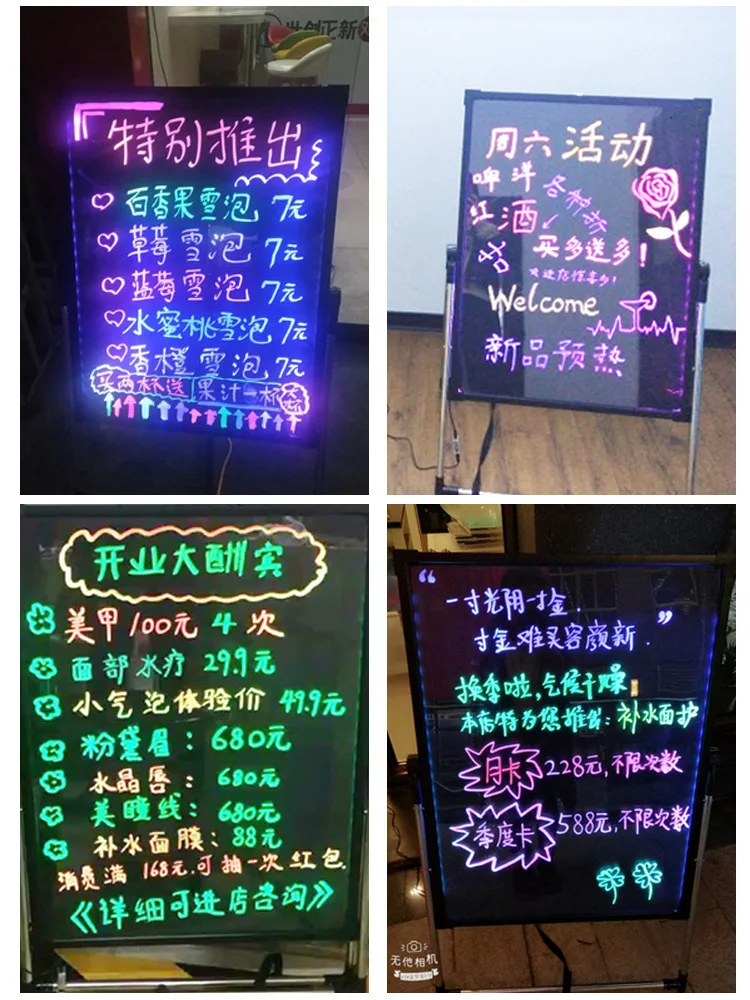 世创正新
特别推出
百香果雪泡 7元
草莓雪泡 7元
蓝莓雪泡 7元
水蜜桃雪泡 7元
香橙雪泡 7元
买两杯送果汁一杯
周六活动
啤洋
红酒
各种
买多送多!
欢迎您惊喜多!
Welcome
新品预热
开业大酬宾
美甲100元4次
面部水疗 29.9元
小气泡体验价 49.9元
粉黛眉:680元
水晶唇:680元
美瞳线:680元
补水面膜:88元
消费满168元.可抽一次红包.
《详细可进店咨询》
“
一寸光阴一寸金.
寸金难买容颜新. ”
换季啦,气候干燥
本店特为您推出:补水面护
月卡 228元,不限次数
季度卡 588元,不限次数
无他相机